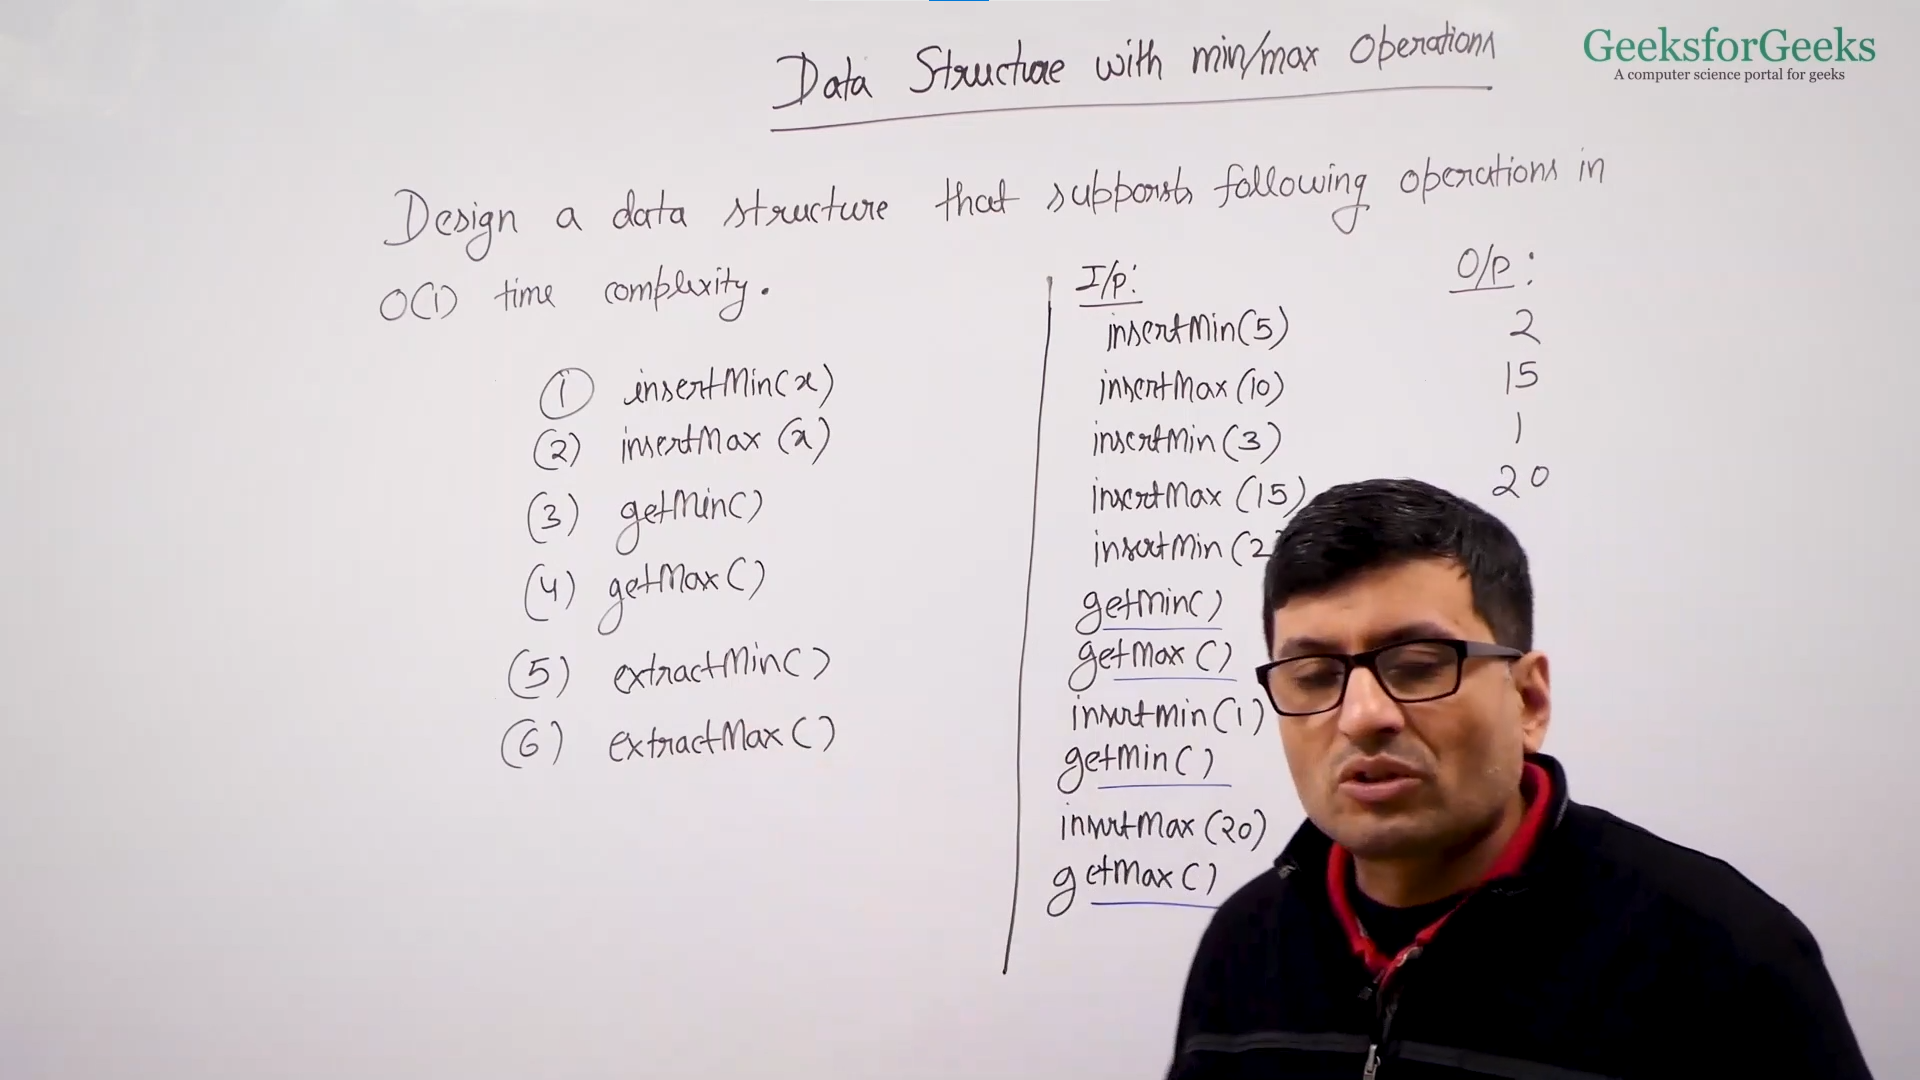 Data Structure with min/max Operations
GeeksforGeeks
A computer science portal for geeks
Design a data structure that supports following operations in
O(1) time complexity.
(1) insertMin(x)
(2) insertMax(x)
(3) getMin()
(4) getMax()
(5) extractMin()
(6) extractMax()
I/p:
insertMin(5)
insertMax(10)
insertMin(3)
insertMax(15)
insertMin(2
getMin()
getMax()
insertMin(1)
getMin()
insertMax(20)
getMax()
O/p:
2
15
1
20